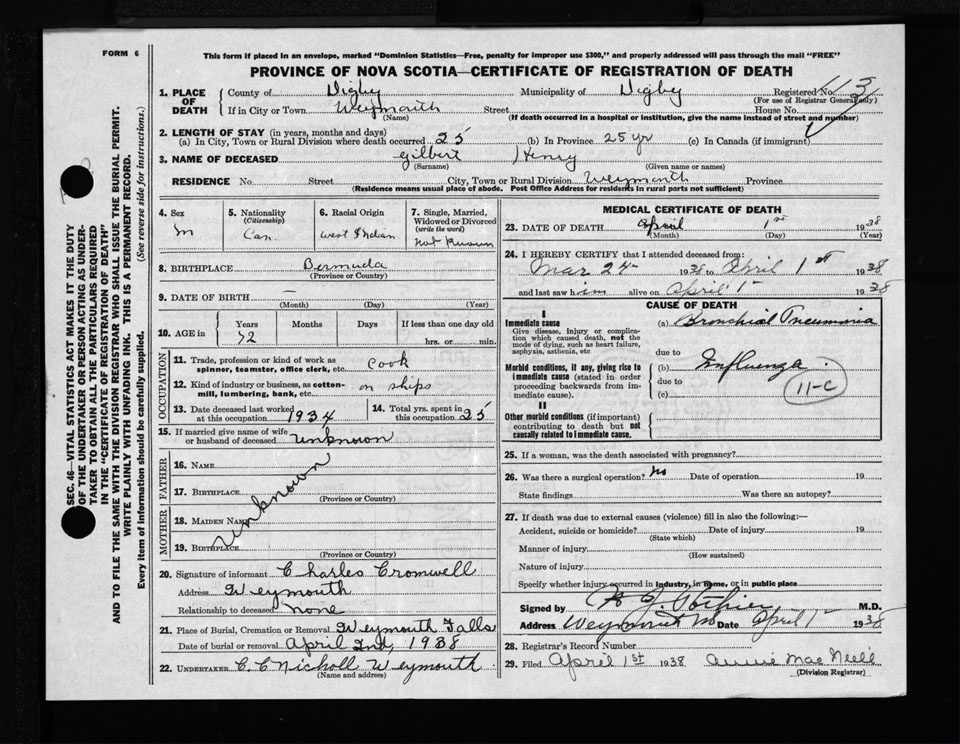 FORM 6
This form if placed in an envelope, marked "Dominion Statistics—Free, penalty for improper use $300," and properly addressed will pass through the mail "FREE"
PROVINCE OF NOVA SCOTIA—CERTIFICATE OF REGISTRATION OF DEATH
SEC. 46—VITAL STATISTICS ACT MAKES IT THE DUTY
OF THE UNDERTAKER OR PERSON ACTING AS UNDER-
TAKER TO OBTAIN ALL THE PARTICULARS REQUIRED
IN THE "CERTIFICATE OF REGISTRATION OF DEATH"
AND TO FILE THE SAME WITH THE DIVISION REGISTRAR WHO SHALL ISSUE THE BURIAL PERMIT.
WRITE PLAINLY WITH UNFADING INK. THIS IS A PERMANENT RECORD.
Every item of information should be carefully supplied. (See reverse side for instructions.)
1. PLACE OF DEATH County of Digby Municipality of Digby Registered No. 113
(For use of Registrar General only)
If in City or Town Weymouth Street House No.
(Name) (If death occurred in a hospital or institution, give the name instead of street and number)
2. LENGTH OF STAY (in years, months and days)
(a) In City, Town or Rural Division where death occurred 25 (b) In Province 25 yr (c) In Canada (if immigrant)
3. NAME OF DECEASED Gilbert Henry
(Surname) (Given name or names)
RESIDENCE No. Street City, Town or Rural Division Weymouth Province
(Residence means usual place of abode. Post Office Address for residents in rural parts not sufficient)
4. Sex M
5. Nationality (Citizenship) Can.
6. Racial Origin West Indian
7. Single, Married, Widowed or Divorced (write the word) Not Known
8. BIRTHPLACE Bermuda
(Province or Country)
9. DATE OF BIRTH —
(Month) (Day) (Year)
10. AGE in Years Months Days If less than one day old
hrs. or min.
OCCUPATION
11. Trade, profession or kind of work as spinner, teamster, office clerk, etc. Cook
12. Kind of industry or business, as cotton-mill, lumbering, bank, etc. on ships
13. Date deceased last worked at this occupation 1934
14. Total yrs. spent in this occupation 25
15. If married give name of wife or husband of deceased unknown
FATHER
16. NAME
17. BIRTHPLACE
(Province or Country)
MOTHER
18. MAIDEN NAME
19. BIRTHPLACE
(Province or Country)
unknown
20. Signature of informant Charles Cromwell
Address Weymouth
Relationship to deceased none
21. Place of Burial, Cremation or Removal Weymouth Falls
Date of burial or removal April 2nd, 1938
22. UNDERTAKER C. C Nicholl Weymouth
(Name and address)
MEDICAL CERTIFICATE OF DEATH
23. DATE OF DEATH April 1st 1938
(Month) (Day) (Year)
24. I HEREBY CERTIFY that I attended deceased from:
Mar 24 1938 to April 1st 1938
and last saw him alive on April 1st 1938
CAUSE OF DEATH
I
Immediate cause
Give disease, injury or complication which caused death, not the mode of dying, such as heart failure, asphyxia, asthenia, etc
(a) Bronchial Pneumonia
due to
Morbid conditions, if any, giving rise to immediate cause (stated in order proceeding backwards from immediate cause).
(b) Influenza
due to
(c)
11-C
II
Other morbid conditions (if important) contributing to death but not causally related to immediate cause.
25. If a woman, was the death associated with pregnancy?
26. Was there a surgical operation? No Date of operation 19
State findings Was there an autopsy?
27. If death was due to external causes (violence) fill in also the following:—
Accident, suicide or homicide? Date of injury 19
(State which)
Manner of injury
(How sustained)
Nature of injury
Specify whether injury occurred in industry, in home, or in public place
Signed by Pothier M.D.
Address Weymouth NS Date April 1st 1938
28. Registrar's Record Number
29. Filed April 1st 1938 Annie MacNeill
(Division Registrar)